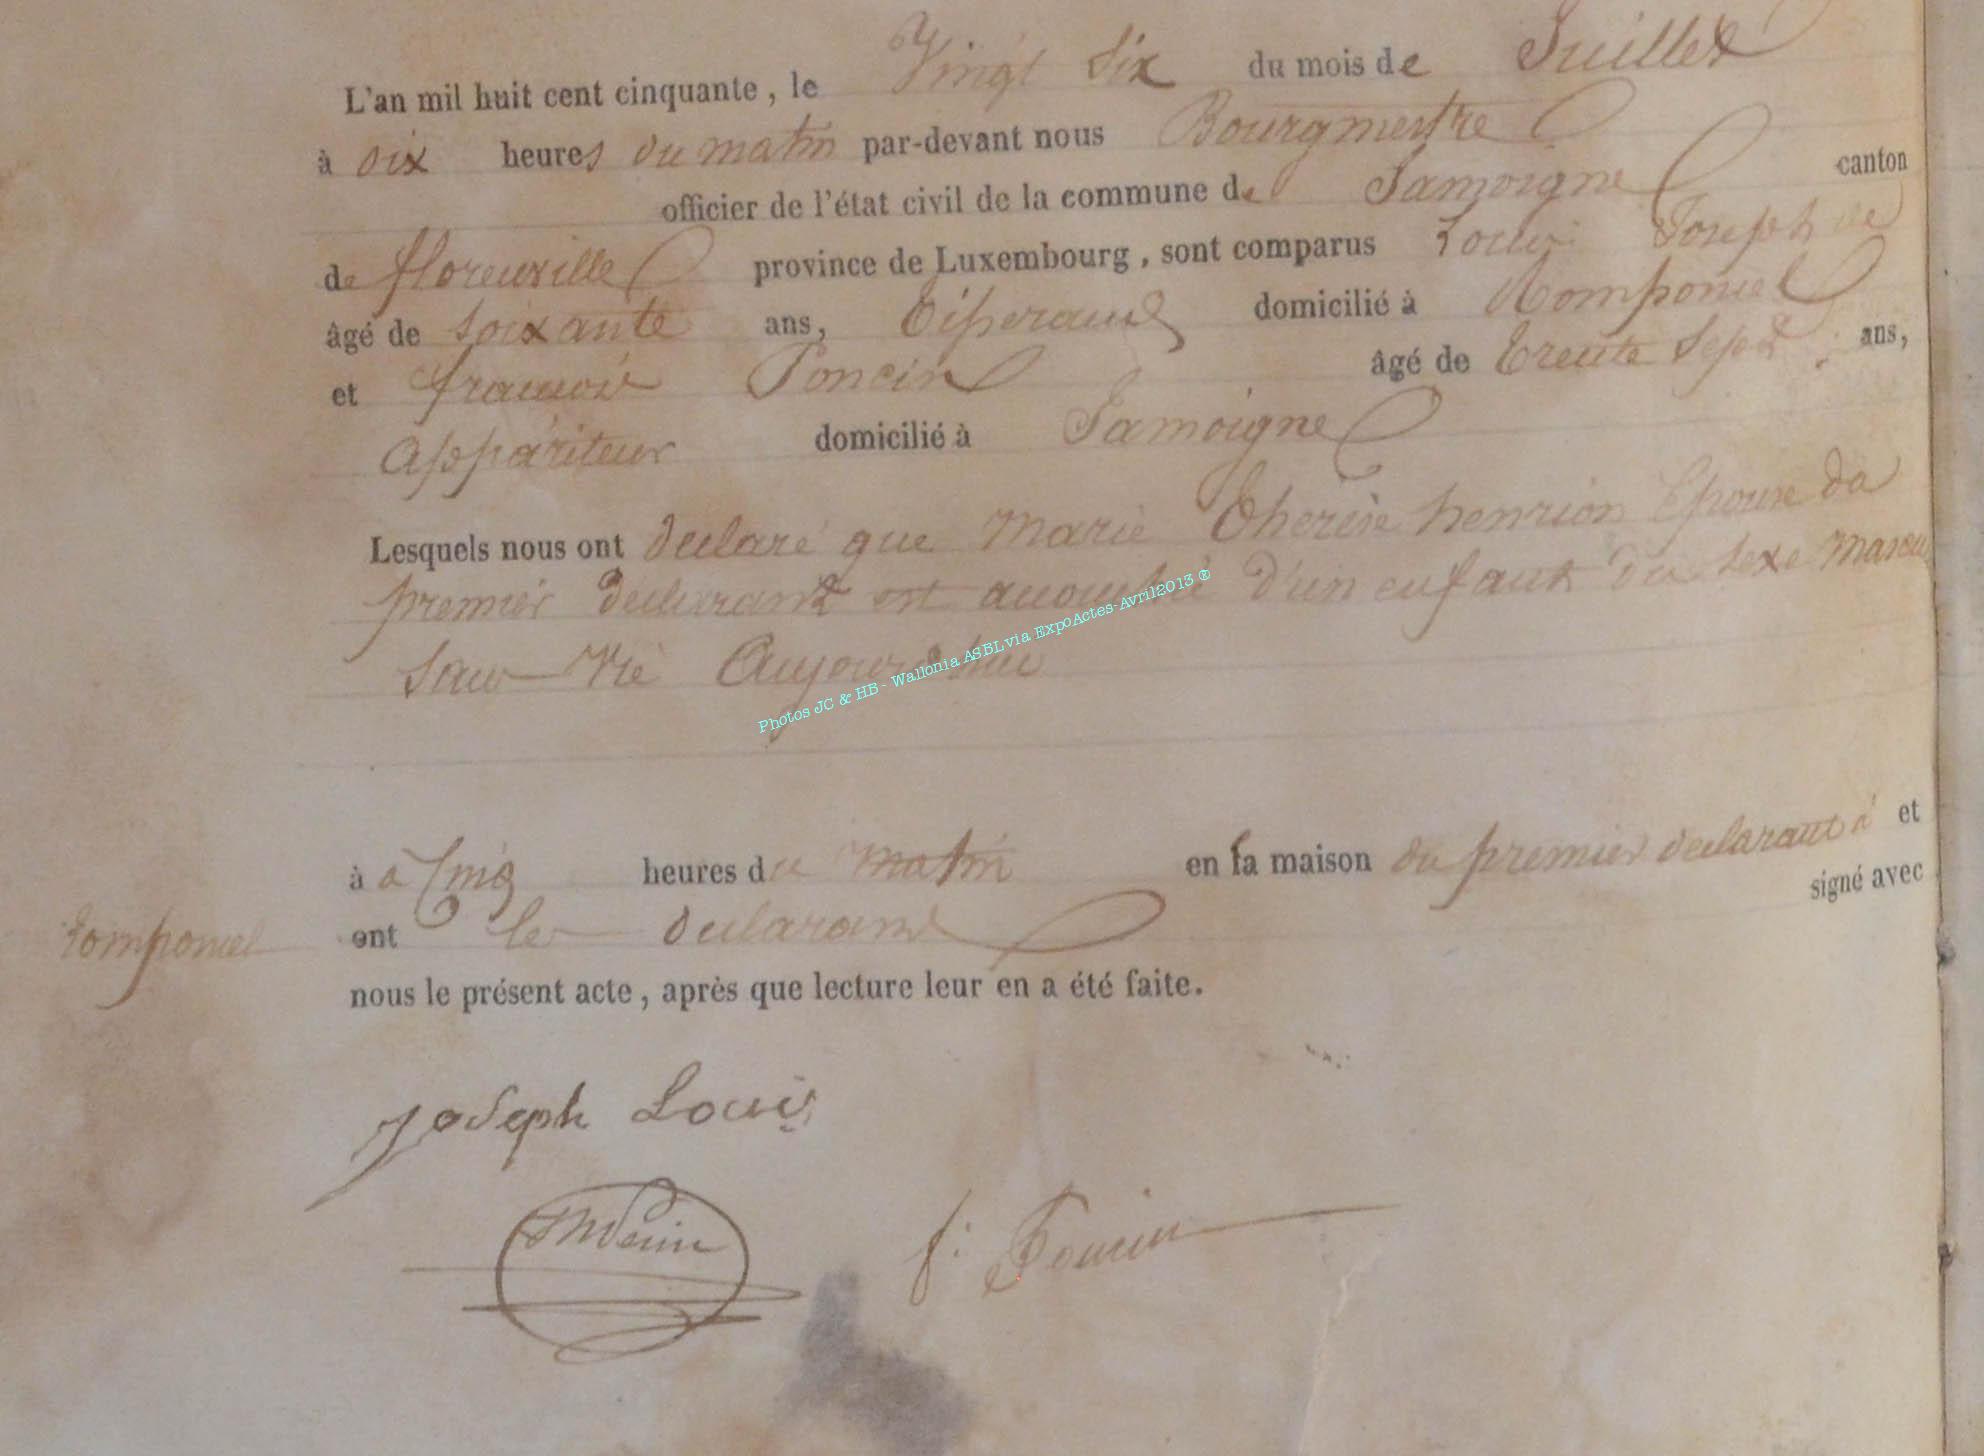 L'an mil huit cent cinquante, le Vingt Six du mois de Juillet
à dix heures du matin par-devant nous Bourgmestre
officier de l'état civil de la commune de Jamoigne canton
de florenville province de Luxembourg, sont comparus Louis Joseph
âgé de soixante ans, domicilié à Romponcel
et françois Poncin âgé de trente Sept ans,
Appariteur domicilié à Jamoigne
Lesquels nous ont declaré que Marie Therèse henrion Epouse du
premier declarant est accouché d'un enfant du sexe mascu
sans vie Aujourd'hui
à à Cinq heures du matin en la maison du premier declarant à et
Romponcel ont les declarant signé avec
nous le présent acte, après que lecture leur en a été faite.
Joseph Louis
f: Poncin
Photos JC & HB - Wallonia ASBL via ExpoActes-Avril2013 ®